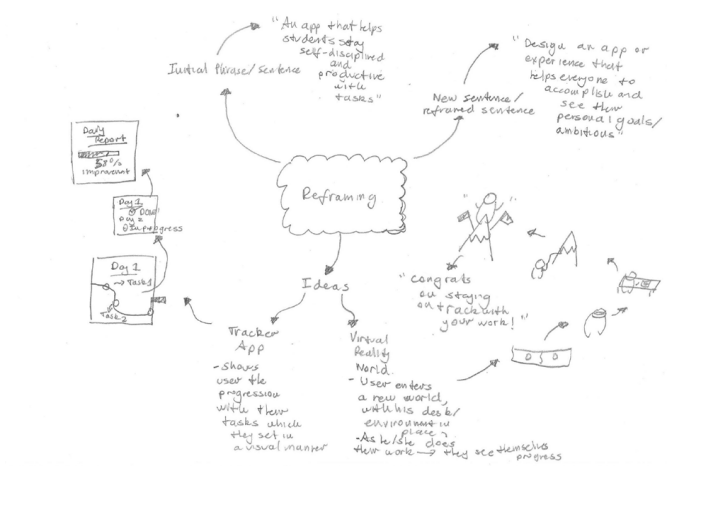 "An app that helps
students stay
self-disciplined
and
productive
with
tasks"
Initial Phrase/sentence
"Design an app or
experience that
helps everyone to
accomplish and
see their
personal goals/
ambitious"
New sentence/
reframed sentence
Daily
Report
58%
improvement
Day 1
Done!
Day 2
Day 1
→ Task 1
Task 2
Reframing
Ideas
"congrats
on staying
on track with
your work!"
Tracker
App
- shows
user the
progression
with their
tasks which
they set in
a visual manner
Virtual
Reality
World.
- User enters
a new world,
with his desk/
environment in
place,
- As he/she does
their work → they see themselves
progress